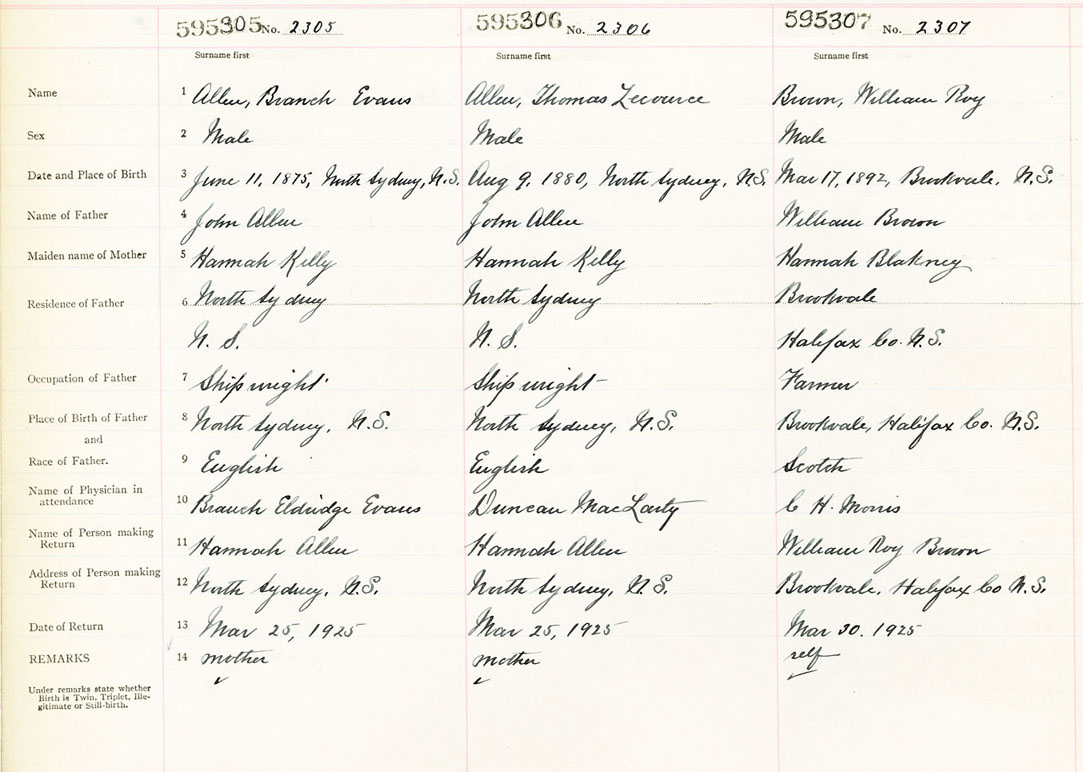 595305 No. 2305 595306 No. 2306 595307 No. 2307
Surname first Surname first Surname first
Name 1 Allen, Branch Evans Allen, Thomas Brown, William Roy
Sex 2 Male Male Male
Date and Place of Birth 3 June 11, 1875, North Sydney, N.S. Aug 9, 1880, North Sydney, N.S. Mar 17, 1892, Brookvale, N.S.
Name of Father 4 John Allen John Allen William Brown
Maiden name of Mother 5 Hannah Kelly Hannah Kelly Hannah Blakney
Residence of Father 6 North Sydney North Sydney Brookvale
N. S. N. S. Halifax Co. N.S.
Occupation of Father 7 Shipwright Shipwright Farmer
Place of Birth of Father 8 North Sydney, N.S. North Sydney, N.S. Brookvale, Halifax Co. N.S.
and
Race of Father. 9 English English Scotch
Name of Physician in
attendance 10 Branch Eldridge Evans Duncan MacLarty C H. Morris
Name of Person making
Return 11 Hannah Allen Hannah Allen William Roy Brown
Address of Person making
Return 12 North Sydney, N.S. North Sydney, N.S. Brookvale, Halifax Co N.S.
Date of Return 13 Mar 25, 1925 Mar 25, 1925 Mar 30. 1925
REMARKS 14 mother mother self
Under remarks state whether
Birth is Twin, Triplet, Ille-
gitimate or Still-birth.